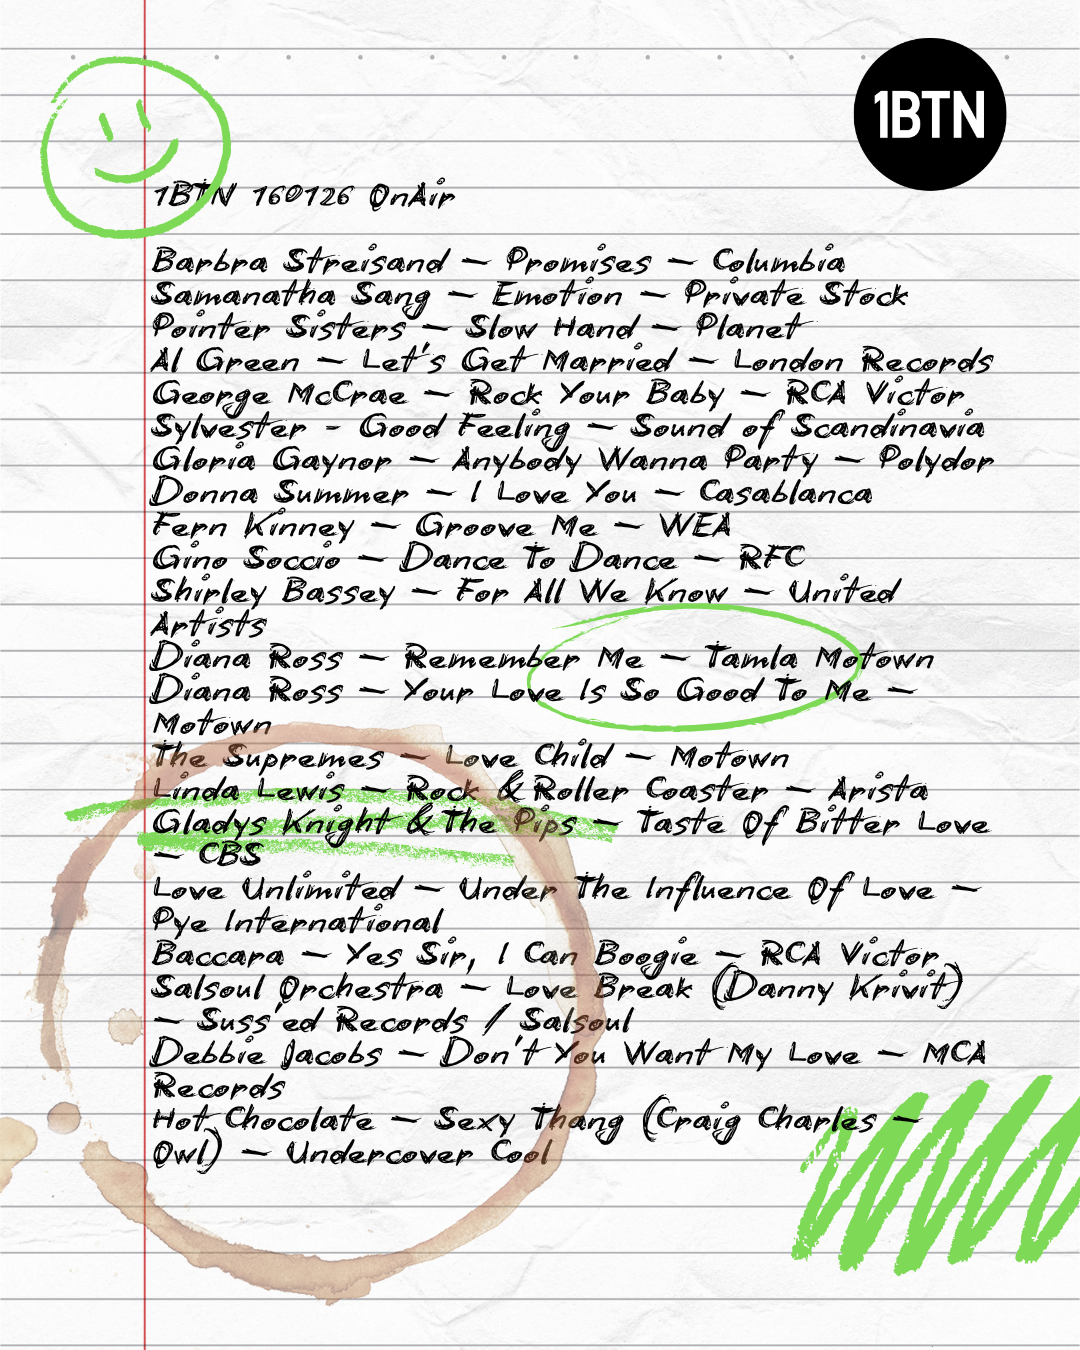 1BTN
1BTN 160126 OnAir
Barbra Streisand – Promises – Columbia
Samanatha Sang – Emotion – Private Stock
Pointer Sisters – Slow Hand – Planet
Al Green – Let's Get Married – London Records
George McCrae – Rock Your Baby – RCA Victor
Sylvester - Good Feeling – Sound of Scandinavia
Gloria Gaynor – Anybody Wanna Party – Polydor
Donna Summer – I Love You – Casablanca
Fern Kinney – Groove Me – WEA
Gino Soccio – Dance To Dance – RFC
Shirley Bassey – For All We Know – United
Artists
Diana Ross – Remember Me – Tamla Motown
Diana Ross – Your Love Is So Good To Me –
Motown
The Supremes – Love Child – Motown
Linda Lewis – Rock & Roller Coaster – Arista
Gladys Knight & The Pips – Taste Of Bitter Love
– CBS
Love Unlimited – Under The Influence Of Love –
Pye International
Baccara – Yes Sir, I Can Boogie – RCA Victor
Salsoul Orchestra – Love Break (Danny Krivit)
– Suss'ed Records / Salsoul
Debbie Jacobs – Don't You Want My Love – MCA
Records
Hot Chocolate – Sexy Thang (Craig Charles –
Owl) – Undercover Cool